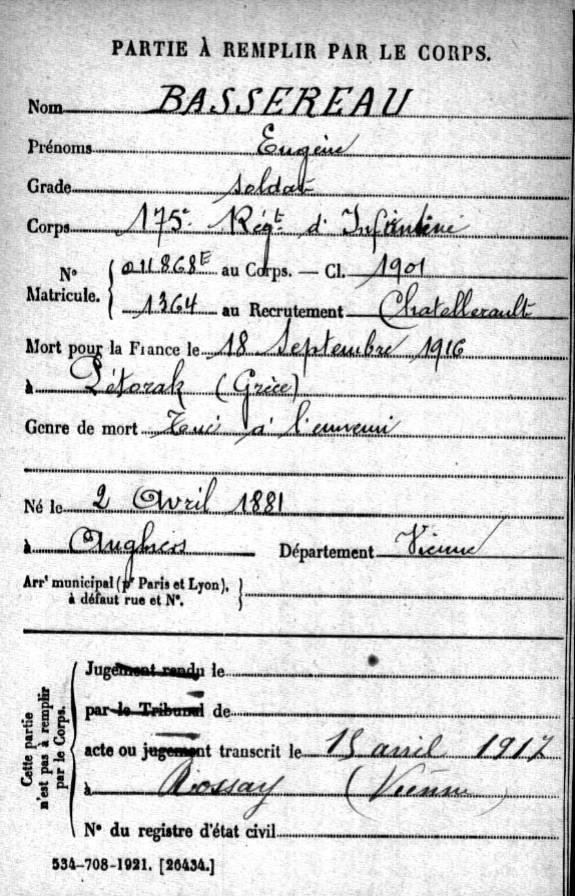 PARTIE À REMPLIR PAR LE CORPS.
Nom BASSEREAU
Prénoms Eugène
Grade soldat
Corps 175e Régt d'Infanterie
N° Matricule. 011868E au Corps. — Cl. 1901
1364 au Recrutement Chatellerault
Mort pour la France le 18 Septembre 1916
à Pétorak (Grèce)
Genre de mort Tué à l'ennemi
Né le 2 Avril 1881
à Département Vienne
Arrt municipal (pr Paris et Lyon),
à défaut rue et N°.
Cette partie n'est pas à remplir par le Corps.
Jugement rendu le
par le Tribunal de
acte ou jugement transcrit le 15 avril 1917
à Rossay (Vienne)
N° du registre d'état civil
534-708-1921. [26434.]